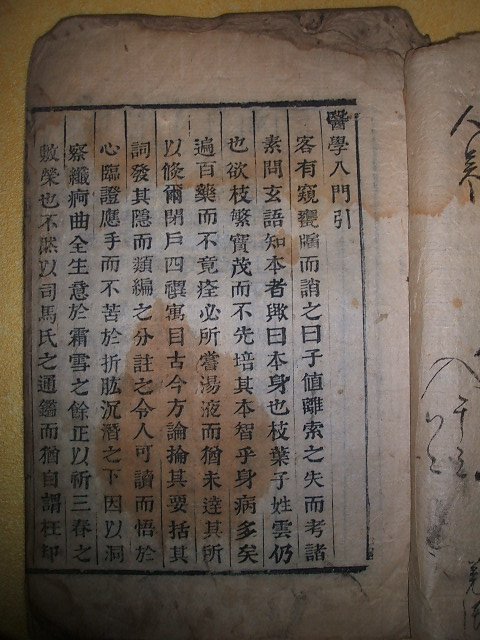 醫學入門引
客有窺甕牖而誚之曰子值離索之失而考諸
素問玄語知本者歟曰本身也枝葉子姓雲仍
也欲枝繁實茂而不先培其本智乎身病多矣
遍百藥而不竟痊必所嘗湯液而猶未達其所
以倏爾閉戶四禩寓目古今方論掄其要括其
詞發其隱而類編之分註之令人可讀而悟於
心臨證應手而不苦於折肱沉潛之下因以洞
察纖疴曲全生意於霜雪之餘正以祈三春之
敷榮也不然以司馬氏之通鑑而猶自謂枉却
人